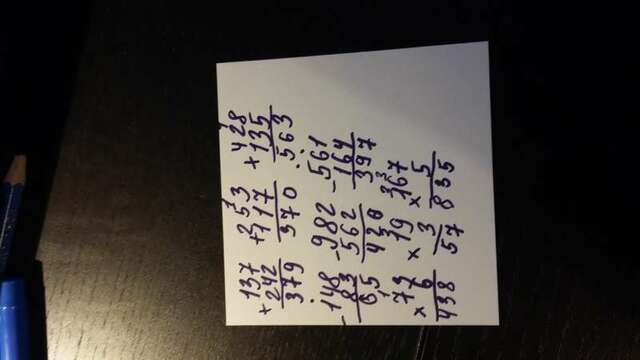 1 1
137 253 428
+ + +
242 117 135
379 370 563
. . .
148 982 561
- - -
83 562 164
65 420 397
1 2 3 3
73 19 167
× × ×
6 3 5
438 57 835